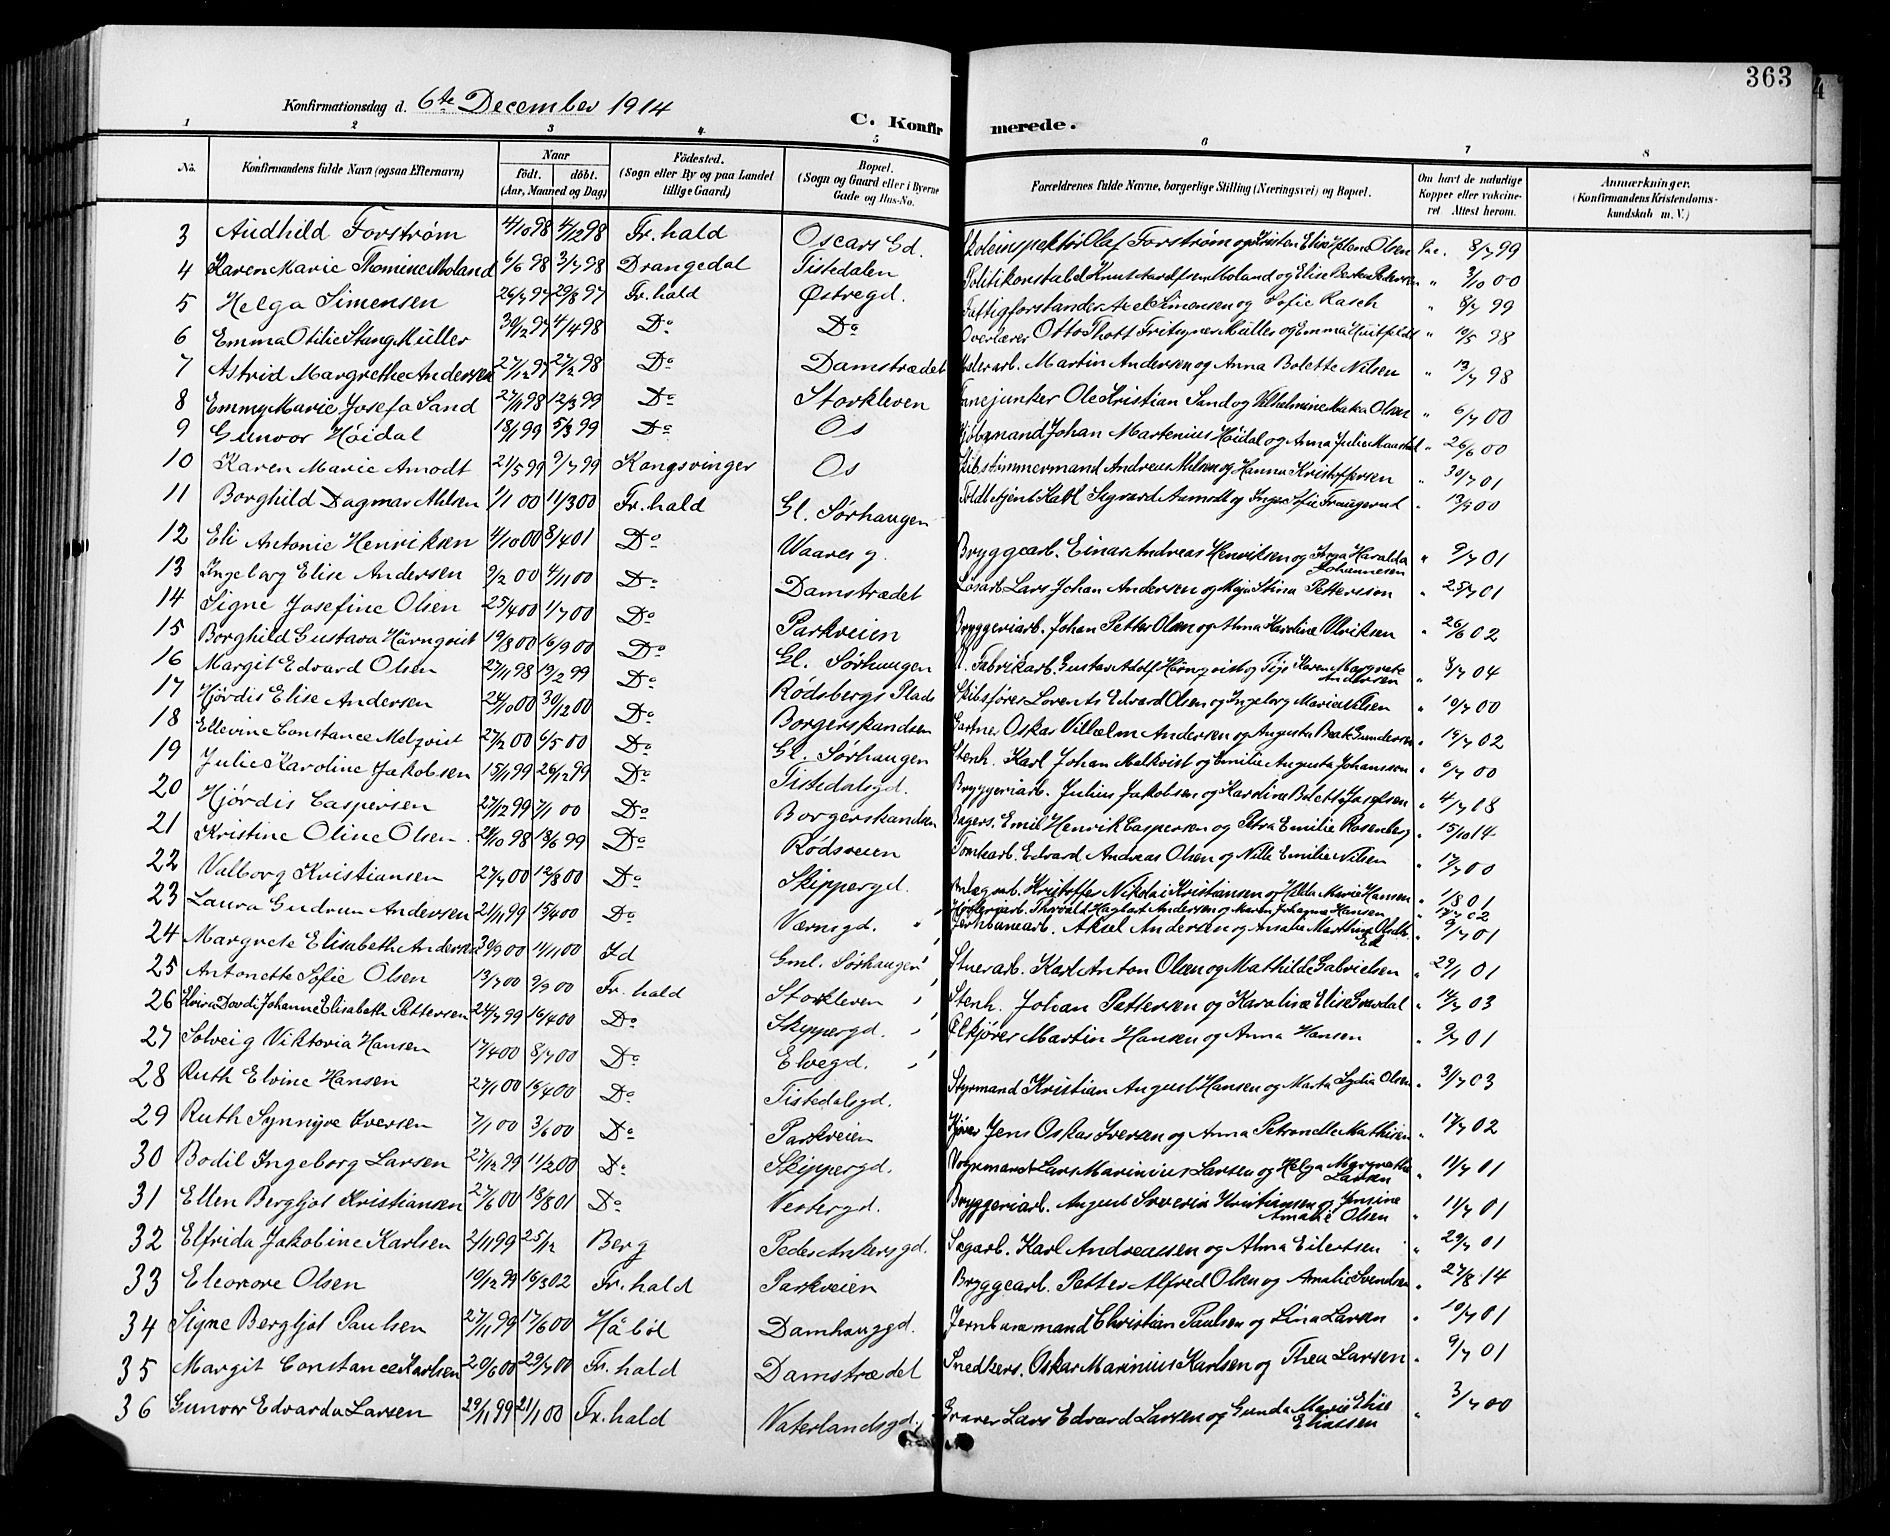 363
Konfirmationsdag d. 6te December 1914
C. Konfirmerede.
1 2 3 4 5 6 7 8
No. Konfirmandens fulde Navn (ogsaa Efternavn) Naar födt. döbt. (Aar, Maaned og Dag) Födested. (Sogn eller By og paa Landet tillige Gaard) Bopæl. (Sogn og Gaard eller i Byerne Gade og Hus-No. Forældrenes fulde Navne, borgerlige Stilling (Næringsvei) og Bopæl. Om havt de naturlige Kopper eller vakcineret Attest herom. Anmærkninger. (Konfirmandens Kristendomskundskab m. V.)
3 Audhild Forstrøm 4/10 98 4/12 98 Fr. hald Oscars Gd. Skoleinspektør Olaf Forstrøm og Kristen Elise Helene Olsen Vac. 8/7 99
4 Karen Marie Thomine Moland 6/6 98 3/7 98 Drangedal Tistedalen Politikonstabel Knut Aardfsen Moland og Elise Pedersen " 3/10 00
5 Helga Simensen 26/7 97 29/8 97 Fr. hald Østregd. Fattigforstander Axel Simensen og Sofie Rasch " 8/7 99
6 Emma Otilie Stang Müller 30/12 97 4/4 98 Do Do Overlærer Otto Thott Fritzner Müller og Emma Huitfeldt " 10/5 98
7 Astrid Margrethe Andersen 27/12 97 27/2 98 Do Damstrædet Martin Andersen og Anna Bolette Nilsen " 13/7 98
8 Emmy Marie Josefa Sand 27/11 98 12/3 99 Do Storkleven Fanejunker Ole Kristian Sand og Vilhelmine Olsen " 6/7 00
9 Gunvor Höidal 18/1 99 5/3 99 Do Os Kjöbmand Johan Martenius Höidal og Anna Julie " 26/6 00
10 Karen Marie Amodt 21/5 99 9/7 99 Kongsvinger Os Skibstømmermand Andreas Nilsen og Hanna Kristoffersen " 30/7 01
11 Borghild Dagmar Nilsen 1/1 00 11/3 00 Fr. hald Gl. Sørhaugen Toldbetjent Karl Sigvard Aamodt og Inger Sofie Fraugerud " 13/9 00
12 Eli Antonie Henriksen 4/10 00 8/4 01 Do Waares g. Bryggearb. Einar Andreas Henriksen og Anna Haralda Johannesen " 9/7 01
13 Ingeborg Elise Andersen 9/2 00 4/11 00 Do Damstrædet Løsarb. Lars Johan Andersen og Maja Stina Pettersson " 25/7 01
14 Signe Josefine Olsen 25/4 00 1/7 00 Do Parkveien Bryggeriarb. Johan Petter Olsen og Alma Karoline Ulriksen " 26/6 02
15 Borghild Gustava Härnqvist 19/8 00 16/9 00 Do Gl. Sørhaugen Fabrikarb. Gustav Adolf Härnqvist og Karen Margrete Andersen " 8/7 04
16 Margit Edvard Olsen 27/11 98 19/2 99 Do Rødsbergs Plads Skibsfører Lorents Edvard Olsen og Ingeborg Marie Nilsen " 19/7 00
17 Hjördis Elise Andersen 24/10 00 30/12 00 Do Borgerskandsen Gartner Oskar Vilhelm Andersen og Augusta Beate Gundersen " 14/7 02
18 Ellevine Constance Melqvist 27/2 00 6/5 00 Do Gl. Sørhaugen Stenh. Karl Johan Melkvist og Emilie Augusta Johansson " 6/7 00
19 Julie Karoline Jakobsen 15/1 99 26/2 99 Do Tistedalsgd. Bryggeriarb. Julius Jakobsen og Karoline Bolette Josefsen " 4/7 08
20 Hjördis Caspersen 27/12 99 7/1 00 Do Borgerskandsen Bagers. Emil Henrik Caspersen og Petra Emilie Rosenberg " 15/10 14
21 Kristine Oline Olsen 21/10 98 18/6 99 Do Rødsveien Tomtearb. Edvard Andreas Olsen og Nille Emilie Nilsen " 17/7 00
22 Valborg Kristiansen 27/7 00 12/8 00 Do Skippergd. Kristoffer Nikolai Kristiansen og Hilda Marie Hansen " 1/8 01
23 Laura Gudrun Andersen 21/11 99 15/4 00 Do Værnsgd. " Thorvald Hagbart Andersen og Maren Johanne Hansen " 14/7 02
24 Margrete Elisabeth Andersen 30/9 00 11/11 00 Id Gml. Sørhaugen Jernbanearb. Aksel Andersen og Amalie Marthine Olsdtr. " 9/7 01
25 Antonette Sofie Olsen 13/7 00 9/9 00 Fr. hald Storkleven Stuerarb. Karl Anton Olsen og Mathilde Gabrielsen " 29/1 01
26 Elvira Dordi Johanne Elisabeth Pettersen 24/7 99 16/4 00 Do Skippergd. Stenh. Johan Pettersen og Karoline Elise Svardal " 14/7 03
27 Solveig Viktoria Hansen 17/4 00 8/7 00 Do Elvegd. Martin Hansen og Anna Hansen " 9/7 01
28 Ruth Elvine Hansen 27/1 00 16/4 00 Do Tistedalsgd. Styrmand Kristian August Hansen og Marta Lydia Olsen " 3/7 03
29 Ruth Synnøve Iversen 7/1 00 3/6 00 Do Parkveien Kjører Jens Oskar Iversen og Anna Petronelle Mathisen " 17/7 02
30 Bodil Ingeborg Larsen 27/12 99 11/2 00 Do Skippergd. Vognmand Lars Marinius Larsen og Helga Margrethe Larsen " 11/7 01
31 Ellen Bergljot Kristiansen 27/6 00 18/8 01 Do Vestergd. Bryggeriarb. August Severin Kristiansen og Jensine Amalie Olsen " 11/7 01
32 Elfrida Jakobine Karlsen 2/11 99 25/12 Berg Peder Ankersgd. Sagarb. Karl Andreassen og Alma Eilertsen " 29/7 01
33 Eleonore Olsen 19/12 99 16/3 02 Fr. hald Parkveien Bryggearb. Petter Alfred Olsen og Amalie Svendsen " 27/8 14
34 Signe Bergljot Paulsen 27/11 99 17/6 00 Håböl Damhauggd. Jernbanemand Christian Paulsen og Lina Larsen " 10/7 01
35 Margit Constance Karlsen 20/6 00 29/7 00 Fr. hald Damstrædet Snedkers. Oskar Marinius Karlsen og Thea Larsen " 9/7 01
36 Gunvor Edvarda Larsen 29/11 99 21/1 00 Fr. hald Vaterlandsgd. Graver Lars Edvard Larsen og Gunda Marie Elise Eliassen " 3/7 00